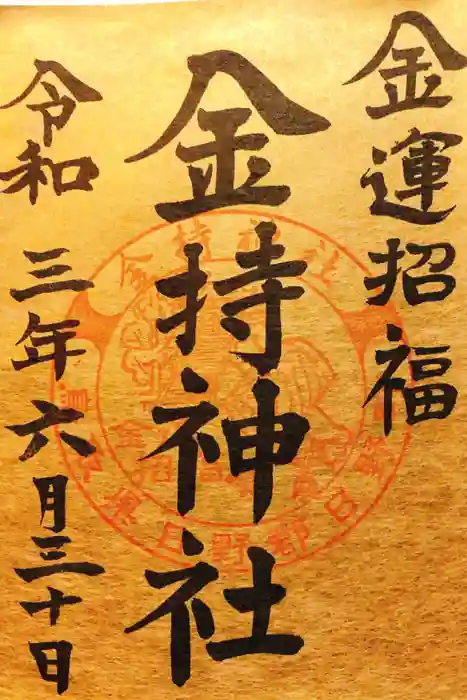 金運招福
金持神社
令和三年六月三十日
金持神社